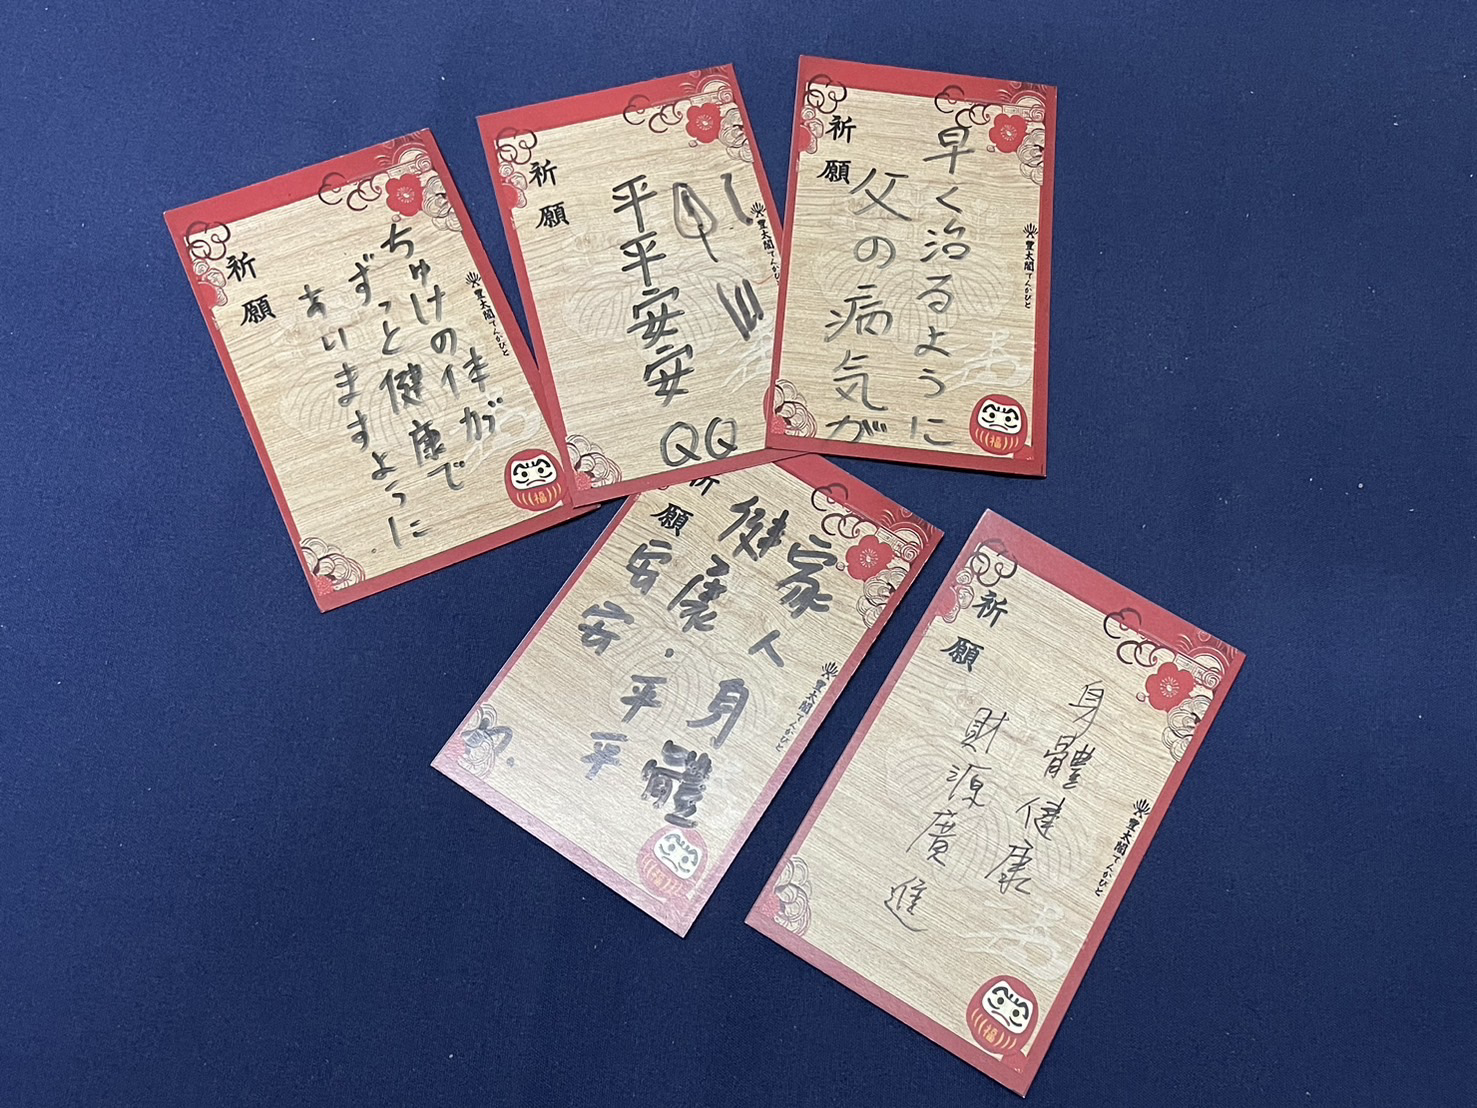 祈願
ちゅけの体が
ずっと健康で
いますように
豊太閤てんかびと
福
祈願
平平安安
QQ
豊太閤てんかびと
祈願
早く治るように
父の病気が
豊太閤てんかびと
福
祈願
家人身體
健康．平平
安安
豊太閤てんかびと
福
祈願
身體健康
財源廣進
豊太閤てんかびと
福